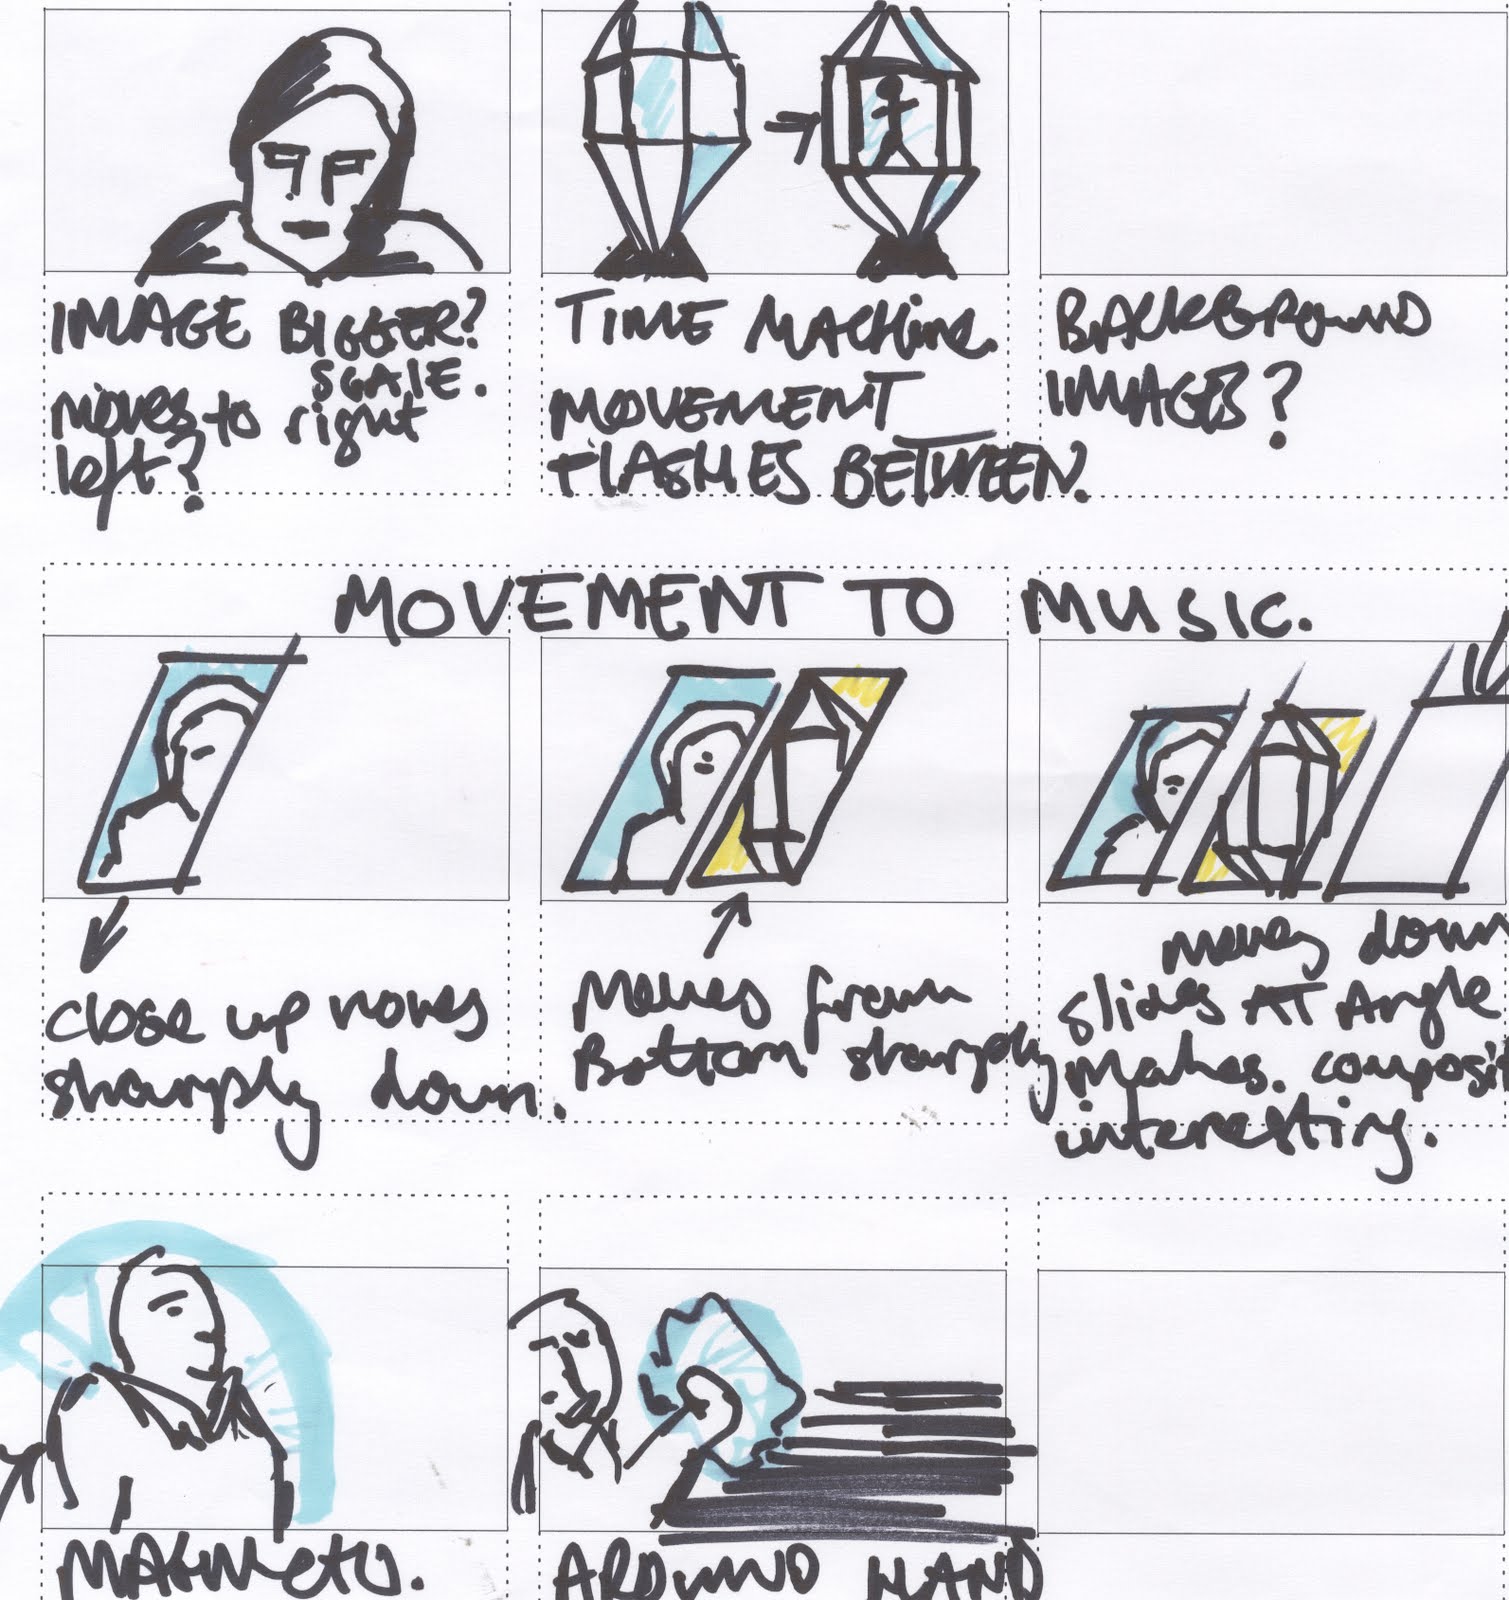 IMAGE BIGGER?
SCALE.
moves to right
left?
TIME MACHINE.
MOVEMENT
FLASHES BETWEEN.
BACKGROUND
IMAGES?
MOVEMENT TO MUSIC.
close up moves
sharply down.
Moves from
Bottom sharply
moves down
slides AT Angle
Makes composit
interesting.
MAGNETO.
AROUND HAND